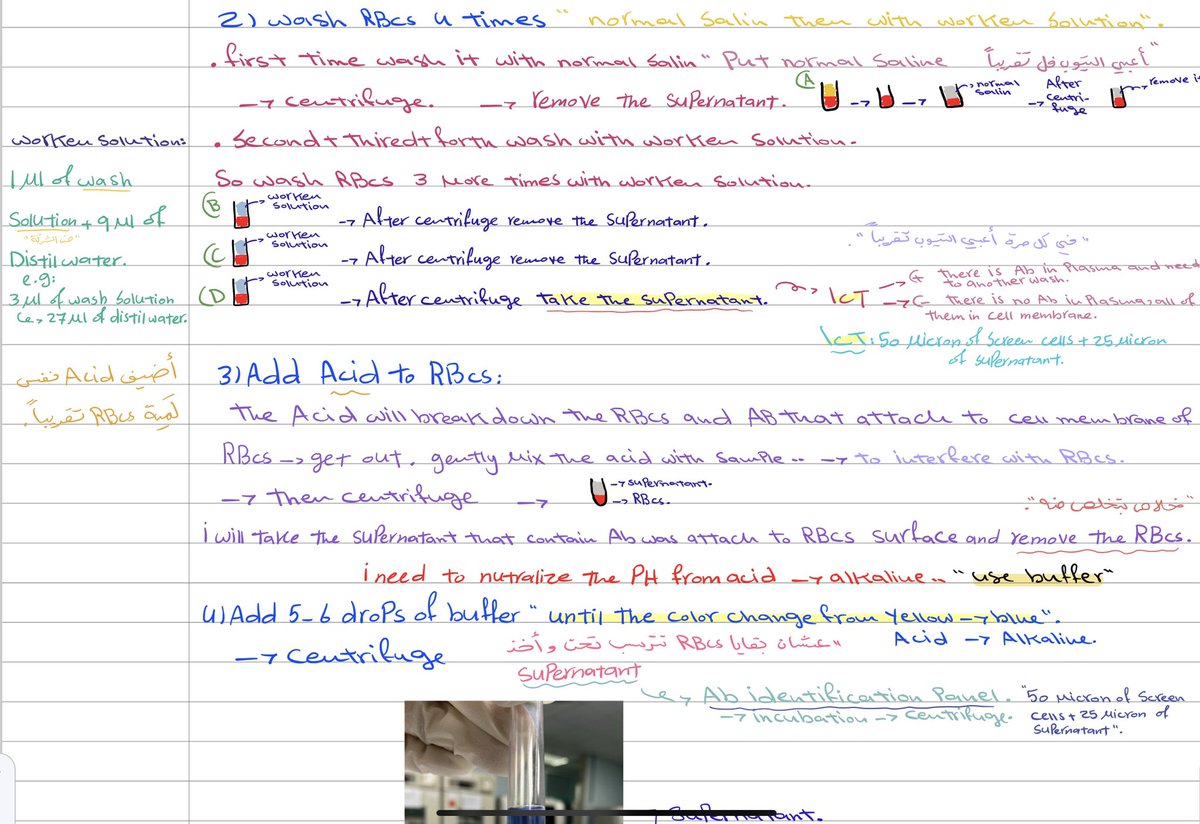 2) wash RBCs 4 times " normal Salin then with worken Solution".
. first time wash it with normal Salin " Put normal Saline أعبي التيوب فل تقريباً "
→ centrifuge. → remove the Supernatant. A → → normal Salin After centrifuge → remove it
worken solution:
. Second + thired + forth wash with worken Solution.
1 Ml of wash
So wash RBCs 3 More times with worken solution.
Solution + 9 Ml of
"من الشركة"
B worken Solution → After centrifuge remove the Supernatant.
"في كل مرة أعبي التيوب تقريباً".
Distil water.
C worken Solution → After centrifuge remove the Supernatant.
e.g:
3 Ml of wash Solution
↳ 27 Ml of distil water.
D worken Solution → After centrifuge take the Supernatant. → ICT
→ + there is Ab in Plasma and need to another wash.
→ - there is no Ab in Plasma, all of them in cell membrane.
ICT: 50 Micron of Screen cells + 25 Micron of Supernatant.
أضيف Acid نفس
كمية RBCs تقريباً.
3) Add Acid to RBCs:
The Acid will break down the RBCs and AB that attach to cell membrane of
RBCs → get out. gently Mix the acid with Sample .. → to interfere with RBCs.
→ Then centrifuge → → Supernatant. → RBCs.
"خلاص بتخلص منه".
i will take the Supernatant that contain Ab was attach to RBCs surface and remove the RBCs.
i need to nutralize the PH from acid → alkaline.. "use buffer"
4) Add 5-6 drops of buffer " until the color change from Yellow → blue".
Acid → Alkaline.
→ Centrifuge
"عشان بقايا RBCs تترسب تحت وأخذ
Supernatant
↳ Ab identification Panel. "50 Micron of Screen cells + 25 Micron of Supernatant".
→ incubation → Centrifuge.
Supernatant.